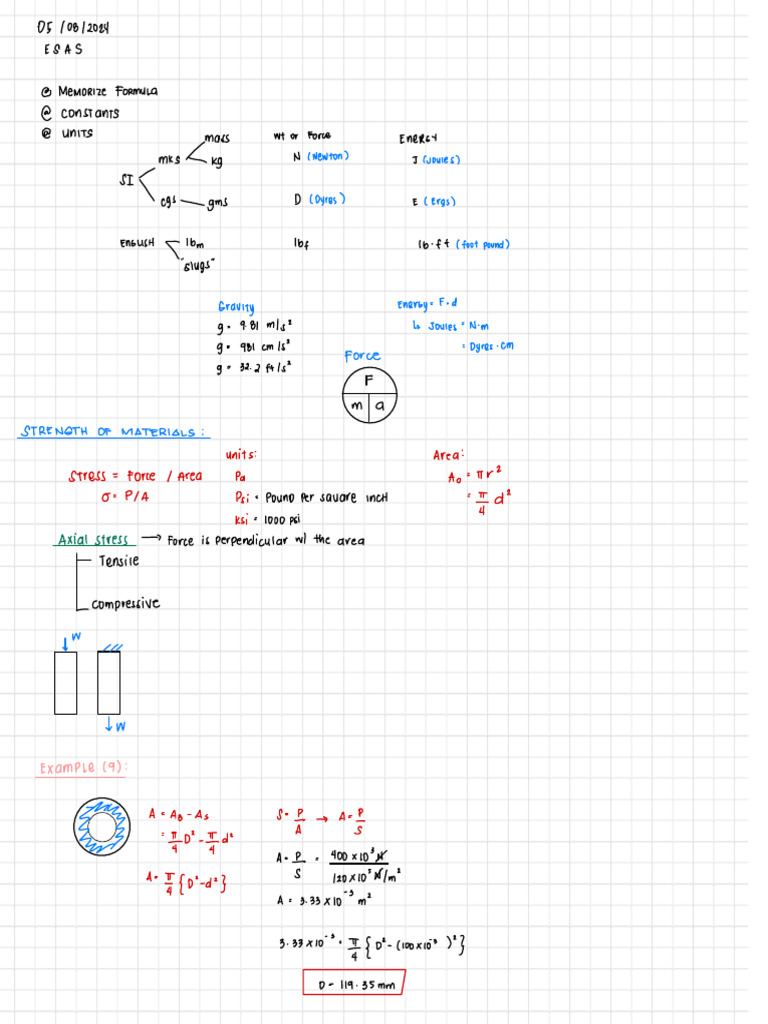 05/08/2024
ESAS
@ MEMORIZE FORMULA
@ CONSTANTS
@ UNITS
mass Wt or Force ENERGY
SI mks kg N (Newton) J (Joules)
cgs gms D (Dynes) E (Ergs)
ENGLISH lbm lbf lb·ft (foot pound)
"slugs"
Gravity
g = 9.81 m/s²
g = 981 cm/s²
g = 32.2 ft/s²
Energy = F·d
↳ Joules = N·m
= Dynes·cm
Force
F
m a
STRENGTH OF MATERIALS:
Stress = Force / Area
σ = P/A
units:
Pa
Psi = Pound per square inch
ksi = 1000 psi
Area:
A₀ = πr²
= π/4 d²
Axial stress → Force is perpendicular w/ the area
Tensile
compressive
W
W
Example (9):
A = AB - AS
= π/4 D² - π/4 d²
A = π/4 {D² - d²}
S = P/A → A = P/S
A = P/S = 400 x 10³ N / 120 x 10⁵ N/m²
A = 3.33 x 10⁻³ m²
3.33 x 10⁻³ = π/4 {D² - (100 x 10⁻³)²}
D = 119.35 mm